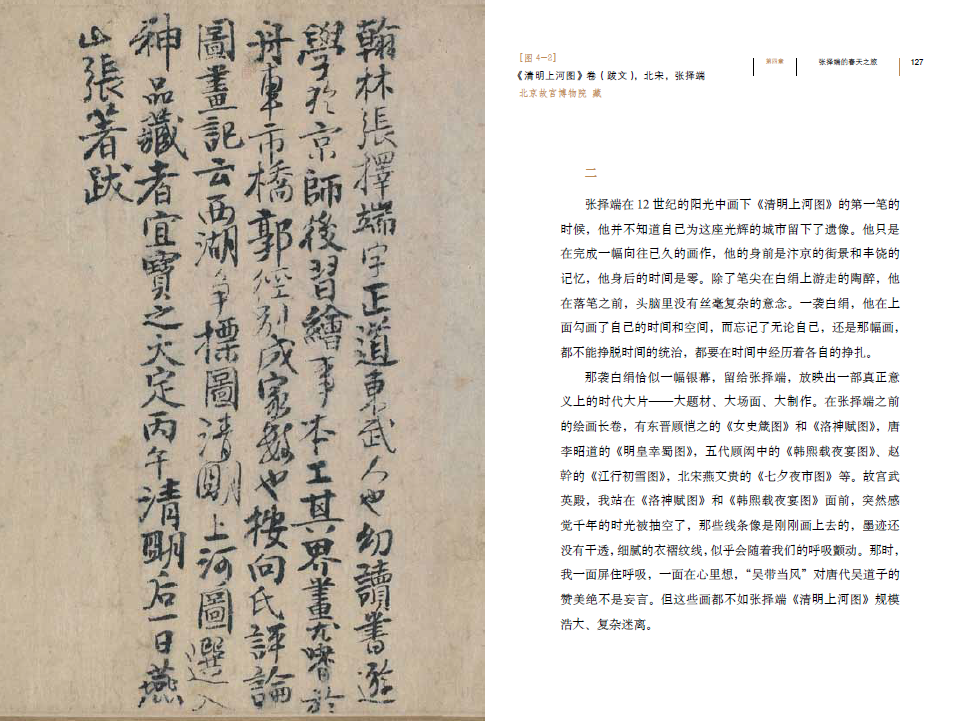 翰林張擇端字正道東武人也幼讀書遊
學於京師後習繪事本工其界畫尤嗜於
舟車市橋郭徑別成家數也按向氏評論
圖畫記云西湖爭標圖清明上河圖選入
神品藏者宜寶之大定丙午清明后一日燕
山張著跋
[图 4—2]
《清明上河图》卷（跋文），北宋，张择端
北京故宫博物院 藏
第四章 张择端的春天之旅 127
二
张择端在 12 世纪的阳光中画下《清明上河图》的第一笔的
时候，他并不知道自己为这座光辉的城市留下了遗像。他只是
在完成一幅向往已久的画作，他的身前是汴京的街景和丰饶的
记忆，他身后的时间是零。除了笔尖在白绢上游走的陶醉，他
在落笔之前，头脑里没有丝毫复杂的意念。一袭白绢，他在上
面勾画了自己的时间和空间，而忘记了无论自己，还是那幅画，
都不能挣脱时间的统治，都要在时间中经历着各自的挣扎。
那袭白绢恰似一幅银幕，留给张择端，放映出一部真正意
义上的时代大片——大题材、大场面、大制作。在张择端之前
的绘画长卷，有东晋顾恺之的《女史箴图》和《洛神赋图》，唐
李昭道的《明皇幸蜀图》，五代顾闳中的《韩熙载夜宴图》、赵
幹的《江行初雪图》，北宋燕文贵的《七夕夜市图》等。故宫武
英殿，我站在《洛神赋图》和《韩熙载夜宴图》面前，突然感
觉千年的时光被抽空了，那些线条像是刚刚画上去的，墨迹还
没有干透，细腻的衣褶纹线，似乎会随着我们的呼吸颤动。那时，
我一面屏住呼吸，一面在心里想，“吴带当风”对唐代吴道子的
赞美绝不是妄言。但这些画都不如张择端《清明上河图》规模
浩大、复杂迷离。